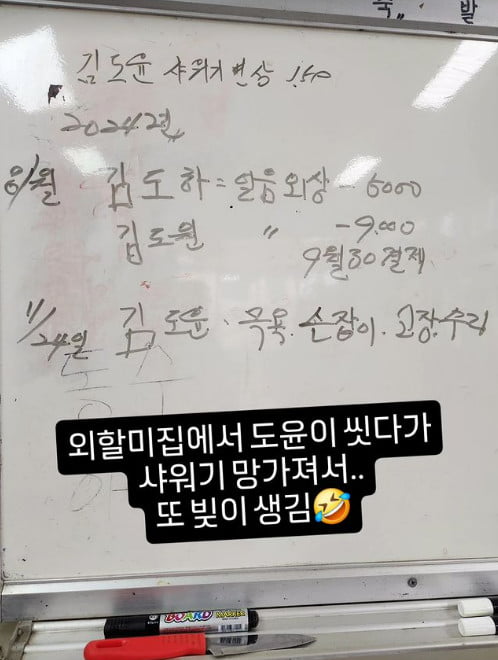 김도윤 샤워기변상 150
2024년
6/월 김도하 = 얼음외상 - 6000
김도윤 〃 -9,000
9월30결제
11/24일 김도윤. 목욕. 손잡이. 고장.수리
외할미집에서 도윤이 씻다가
샤워기 망가져서..
또 빚이 생김🤣
BOARD MARKER